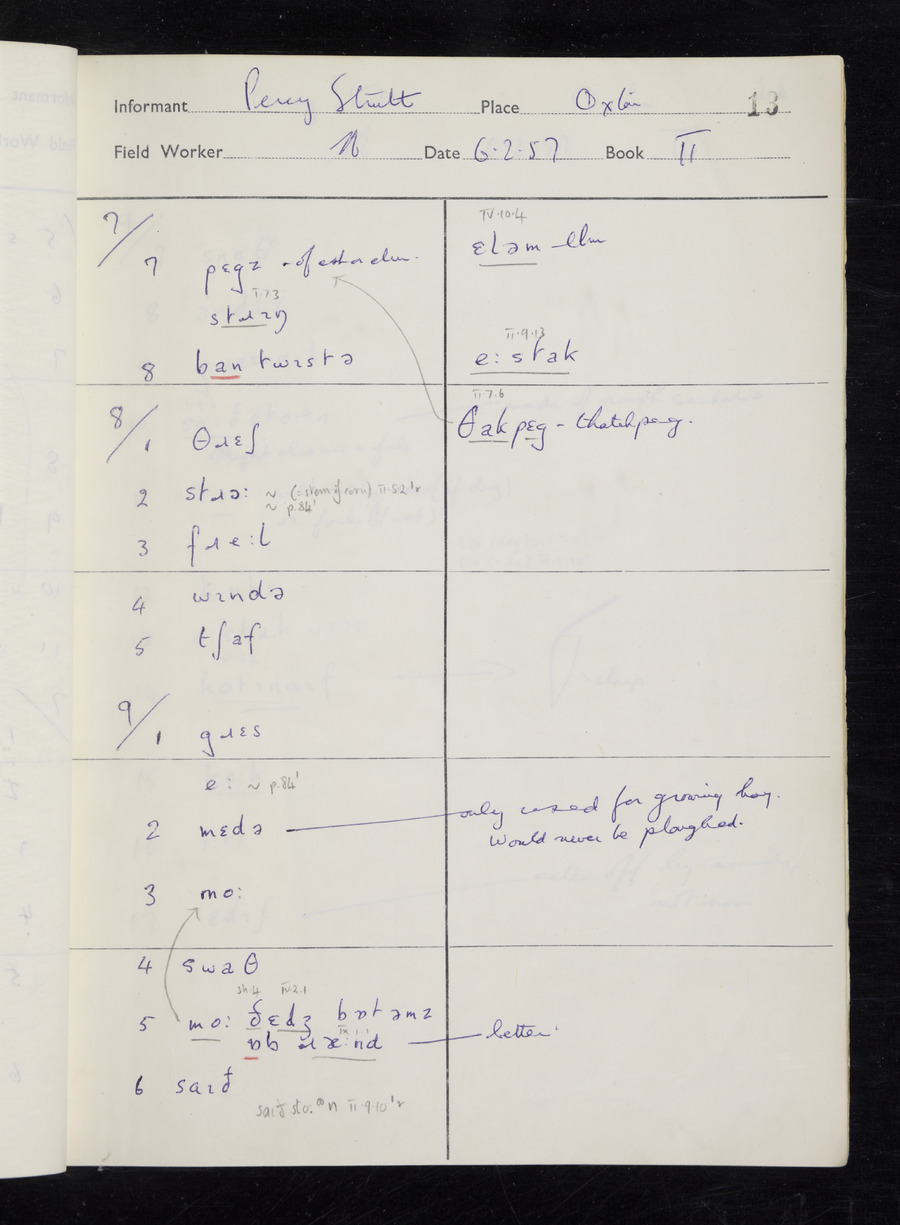 Informant Percy Strutt Place Oxton 13
Field Worker N Date 6.2.57 Book II
7/
7 pɛgz - of
IV.10.4
ɛləm - elm
I.7.3
stɹɪŋ
8 ban twɪstə
II.9.13
e: stak
8/
II.7.6
θak pɛg - thatch peg.
1 θɹɛʃ
2 stɹɔ: ~ (= stem of corn) II.5.2 'r
~ p.84'
3 fɹe:l
4 wɪndə
5 tʃaf
9/
1 gɹɛs
e: ~ p.84'
2 mɛdə only used for growing hay.
Would never be ploughed.
3 mo:
4 swaθ
sh.4 IV.2.1
5 mo: ðɛdʒ bɒtəmz
IX.1.1
ɒb nd letter
6 saɪð
saɪð sto:ᵊn II.9.10 'r